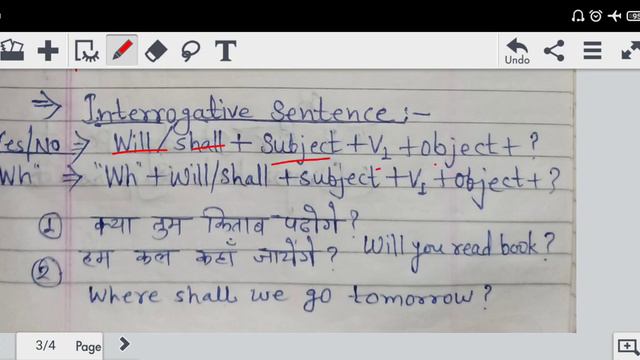 95
Undo
⇒ Interrogative Sentence :-
Yes/No ⇒ Will/shall + Subject + V1 + object + ?
"Wh" ⇒ "Wh" + Will/shall + subject + V1 + object + ?
① क्या तुम किताब पढोगे? Will you read book?
② हम कल कहाँ जायेंगे?
Where shall we go tomorrow?
3/4 Page